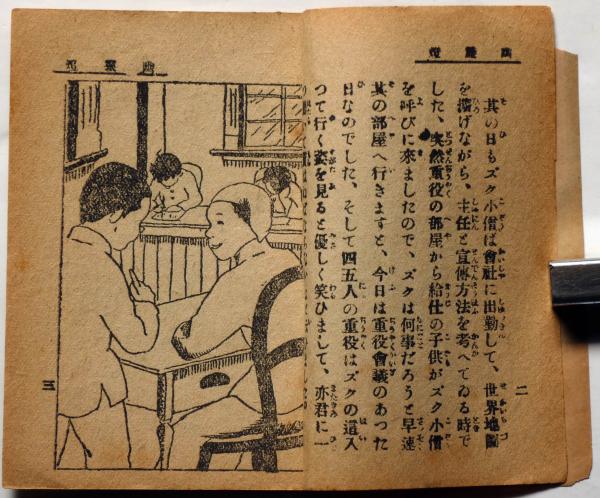 其の日もズク小僧は會社に出勤して、世界地圖
を擴げながら、主任と宣傳方法を考へてゐる時で
した、突然重役の部屋から給仕の子供がズク小僧
を呼びに來ましたので、ズクは何事だらうと早速
其の部屋へ行きますと、今日は重役會議のあつた
日なのでした、そして四五人の重役はズクの這入
つて行く姿を見ると優しく笑ひまして、亦君に一
二
三